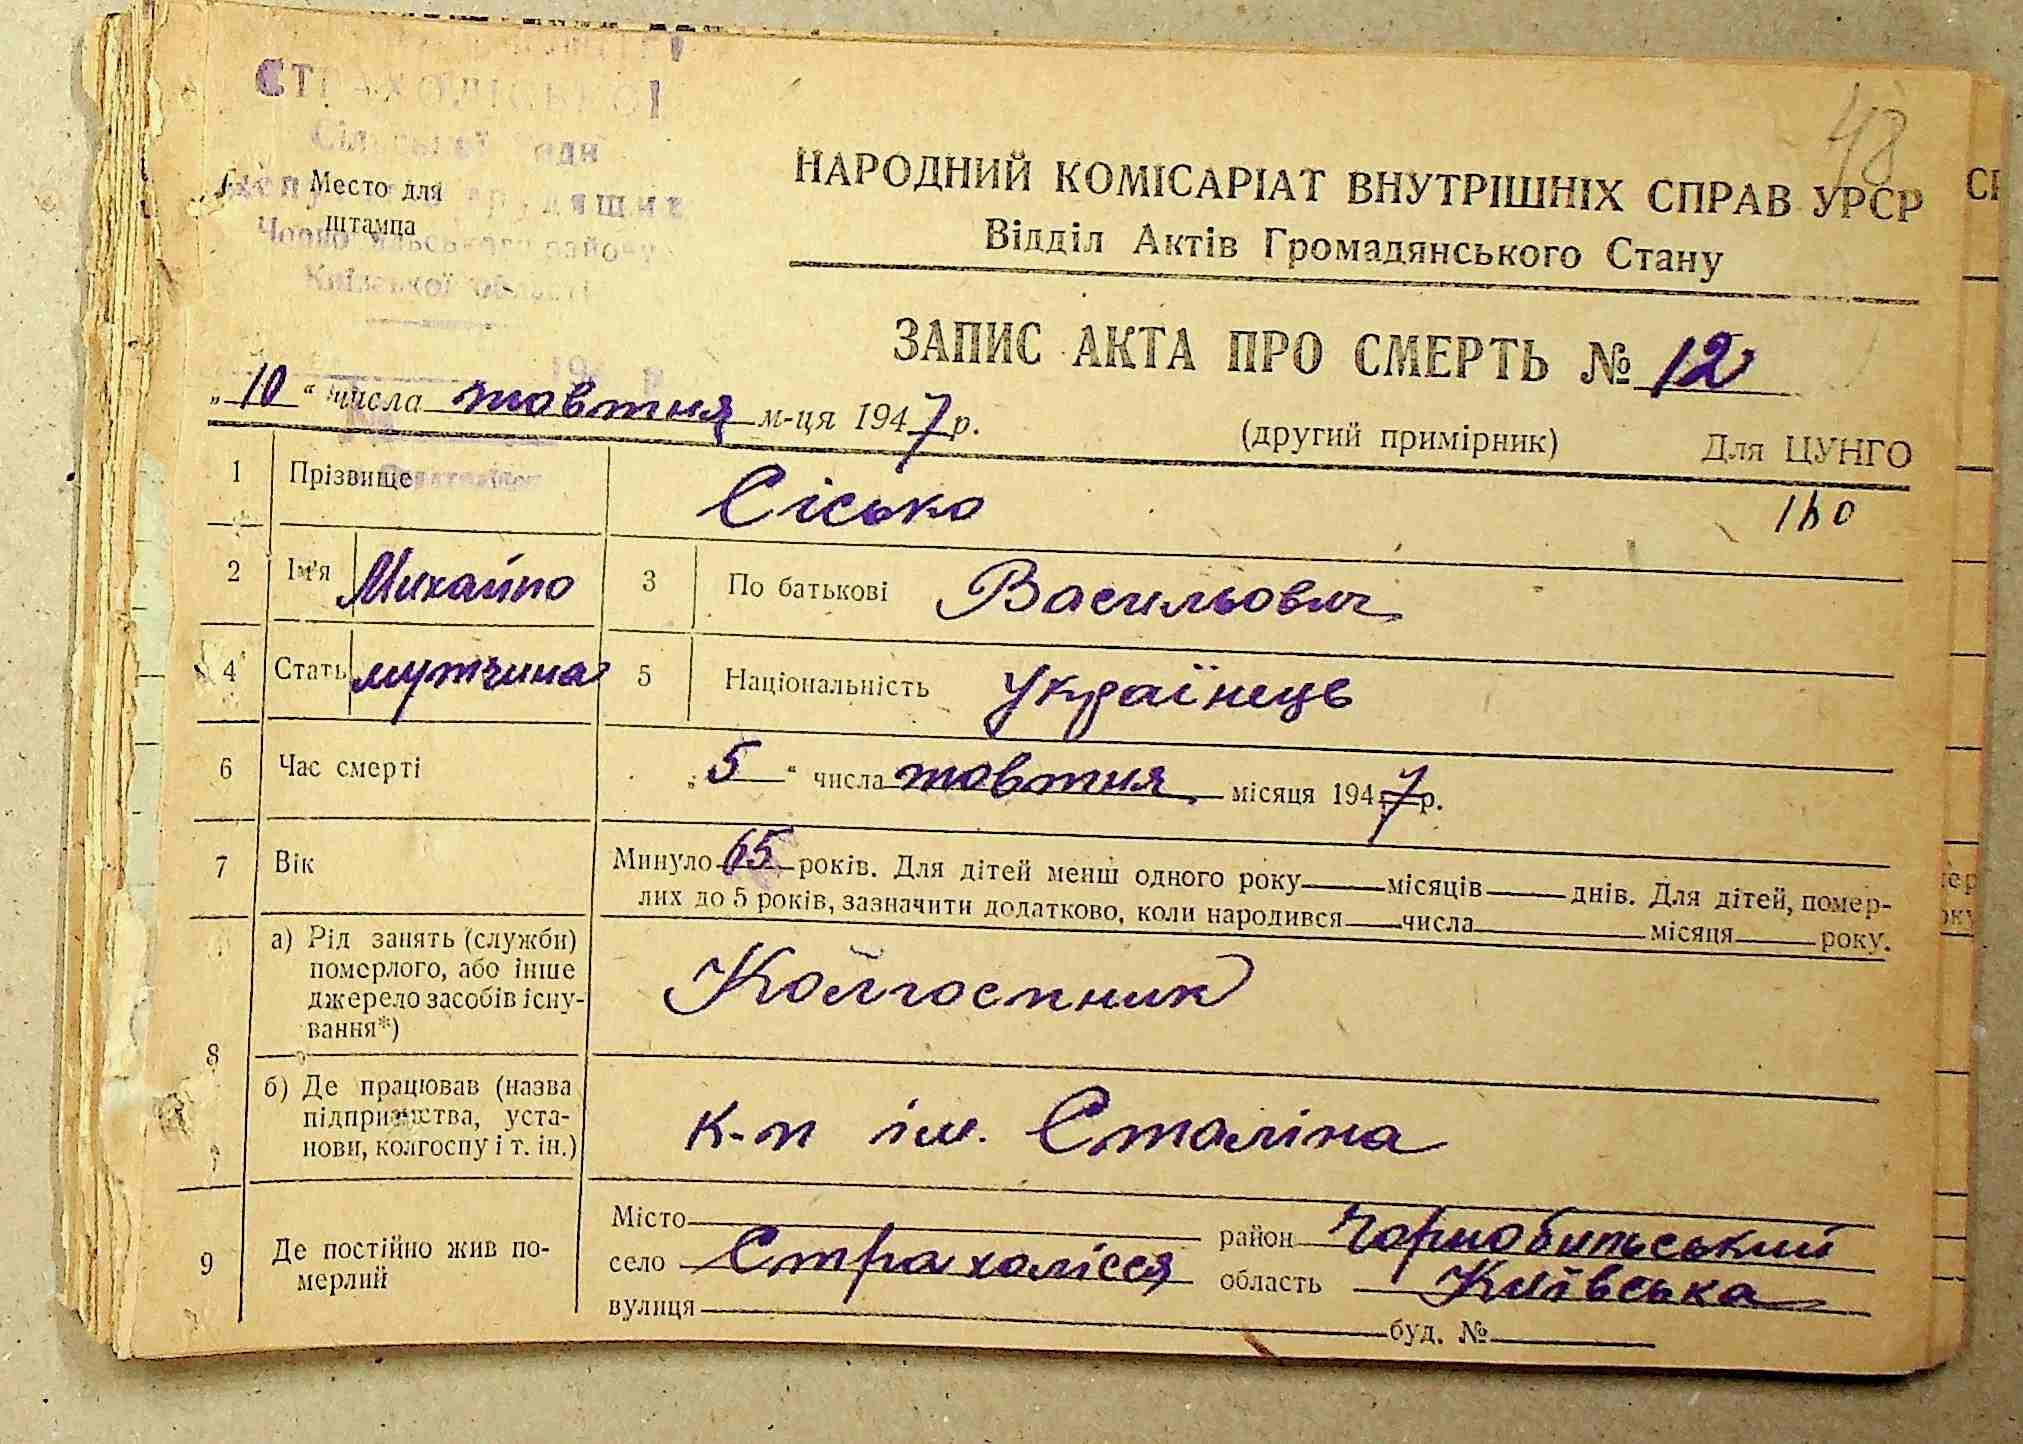 СТРАХОЛІСЬКОЇ
Сільської Ради
Місто для
штампа
Чорнобильського району
Київської області
48
НАРОДНИЙ КОМІСАРІАТ ВНУТРІШНІХ СПРАВ УРСР
Відділ Актів Громадянського Стану
ЗАПИС АКТА ПРО СМЕРТЬ № 12
„10“ числа жовтня м-ця 1947 р.
(другий примірник) Для ЦУНГО
1 Прізвище Сісько
2 Ім'я Михайло 3 По батькові Васильович
4 Стать мужчина 5 Національність Українець
6 Час смерті „5“ числа жовтня місяця 1947 р.
7 Вік Минуло 65 років. Для дітей менш одного року місяців днів. Для дітей, помер-
лих до 5 років, зазначити додатково, коли народився числа місяця року.
8 а) Рід занять (служби)
померлого, або інше
джерело засобів існу-
вання*)
Колгоспник
б) Де працював (назва
підприємства, уста-
нови, колгоспу і т. ін.)
к-п ім. Сталіна
9 Де постійно жив по-
мерлий
Місто район Чорнобильський
село Страхолісся область Київська
вулиця буд. №